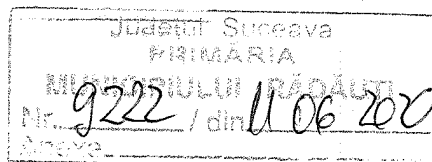 Județul Suceava
PRIMĂRIA
MUNICIPIULUI RĂDĂUȚI
Nr. 9222 / din 11 06 2020
Anexe